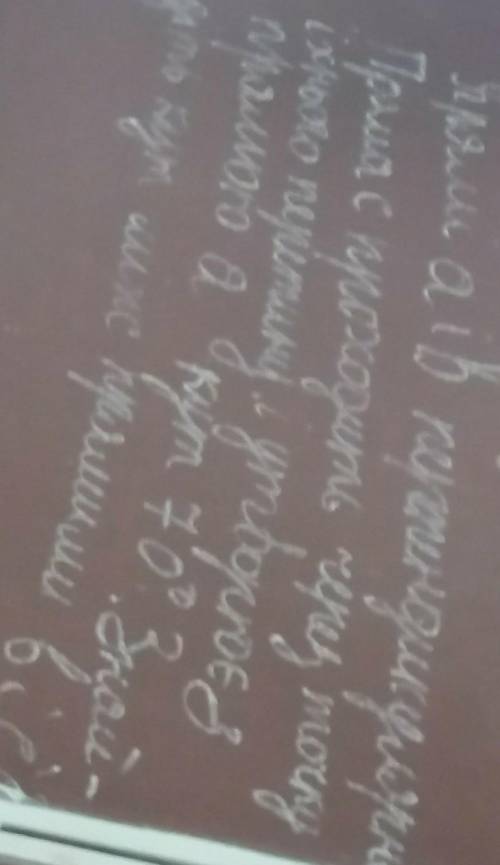 Прямі а і в перпендикулярні
Пряма с проходить через точку
їхнього перетину і утворює з
прямого а кут 70°. Знай-
діть кут між прямими в і с